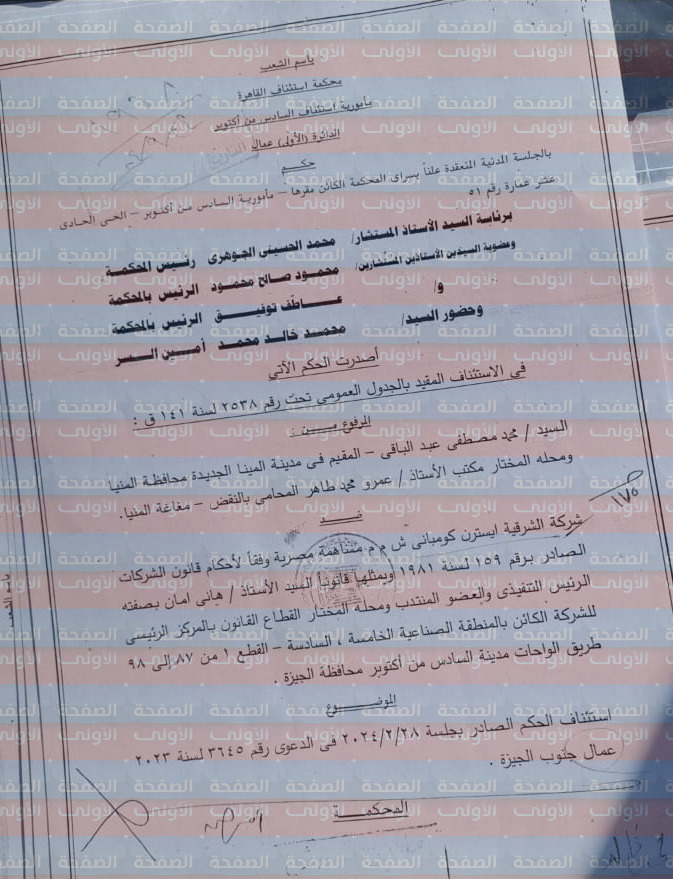 باسم الشعب
محكمة استئناف القاهرة
مأمورية استئناف السادس من أكتوبر
الدائرة (الأولى) عمال
حكم
بالجلسة المدنية المنعقدة علناً بسراى المحكمة الكائن مقرها – مأمورية السادس من أكتوبر – الحى الحادى
عشر عمارة رقم ٥١
برئاسة السيد الأستاذ المستشار/ محمد الحسينى الجوهرى رئيس المحكمة
وعضوية السيدين الأستاذين المستشارين/ محمود صالح محمود الرئيس بالمحكمة
و/ عاطف توفيق الرئيس بالمحكمة
وحضور السيد/ محمد خالد محمد أمين السر
أصدرت الحكم الآتي
في الاستئناف المقيد بالجدول العمومي تحت رقم ٢٥٣٨ لسنة ١٤١ ق :
المرفوع من :
السيد / محمد مصطفى عبد الباقى – المقيم فى مدينة المينا الجديدة محافظة المنيا
ومحله المختار مكتب الأستاذ / عمرو محمد طاهر المحامى بالنقض – مغاغة المنيا.
ضد
شركة الشرقية ايسترن كومبانى ش م م مساهمة مصرية وفقاً لأحكام قانون الشركات
الصادر برقم ١٥٩ لسنة ١٩٨١ ويمثلها قانوناً السيد الأستاذ / هاني امان بصفته
الرئيس التنفيذى والعضو المنتدب ومحله المختار القطاع القانون بالمركز الرئيسى
للشركة الكائن بالمنطقة الصناعية الخامسة ، السادسة – القطع ١ من ٨٧ إلى ٩٨
طريق الواحات مدينة السادس من أكتوبر محافظة الجيزة .
الموضوع
استئناف الحكم الصادر بجلسة ٢٠٢٤/٢/٢٨ فى الدعوى رقم ٣٦٤٥ لسنة ٢٠٢٣
عمال جنوب الجيزة .
المحكمة
١٧٥
باسم الشعب
الصفحة الأولى